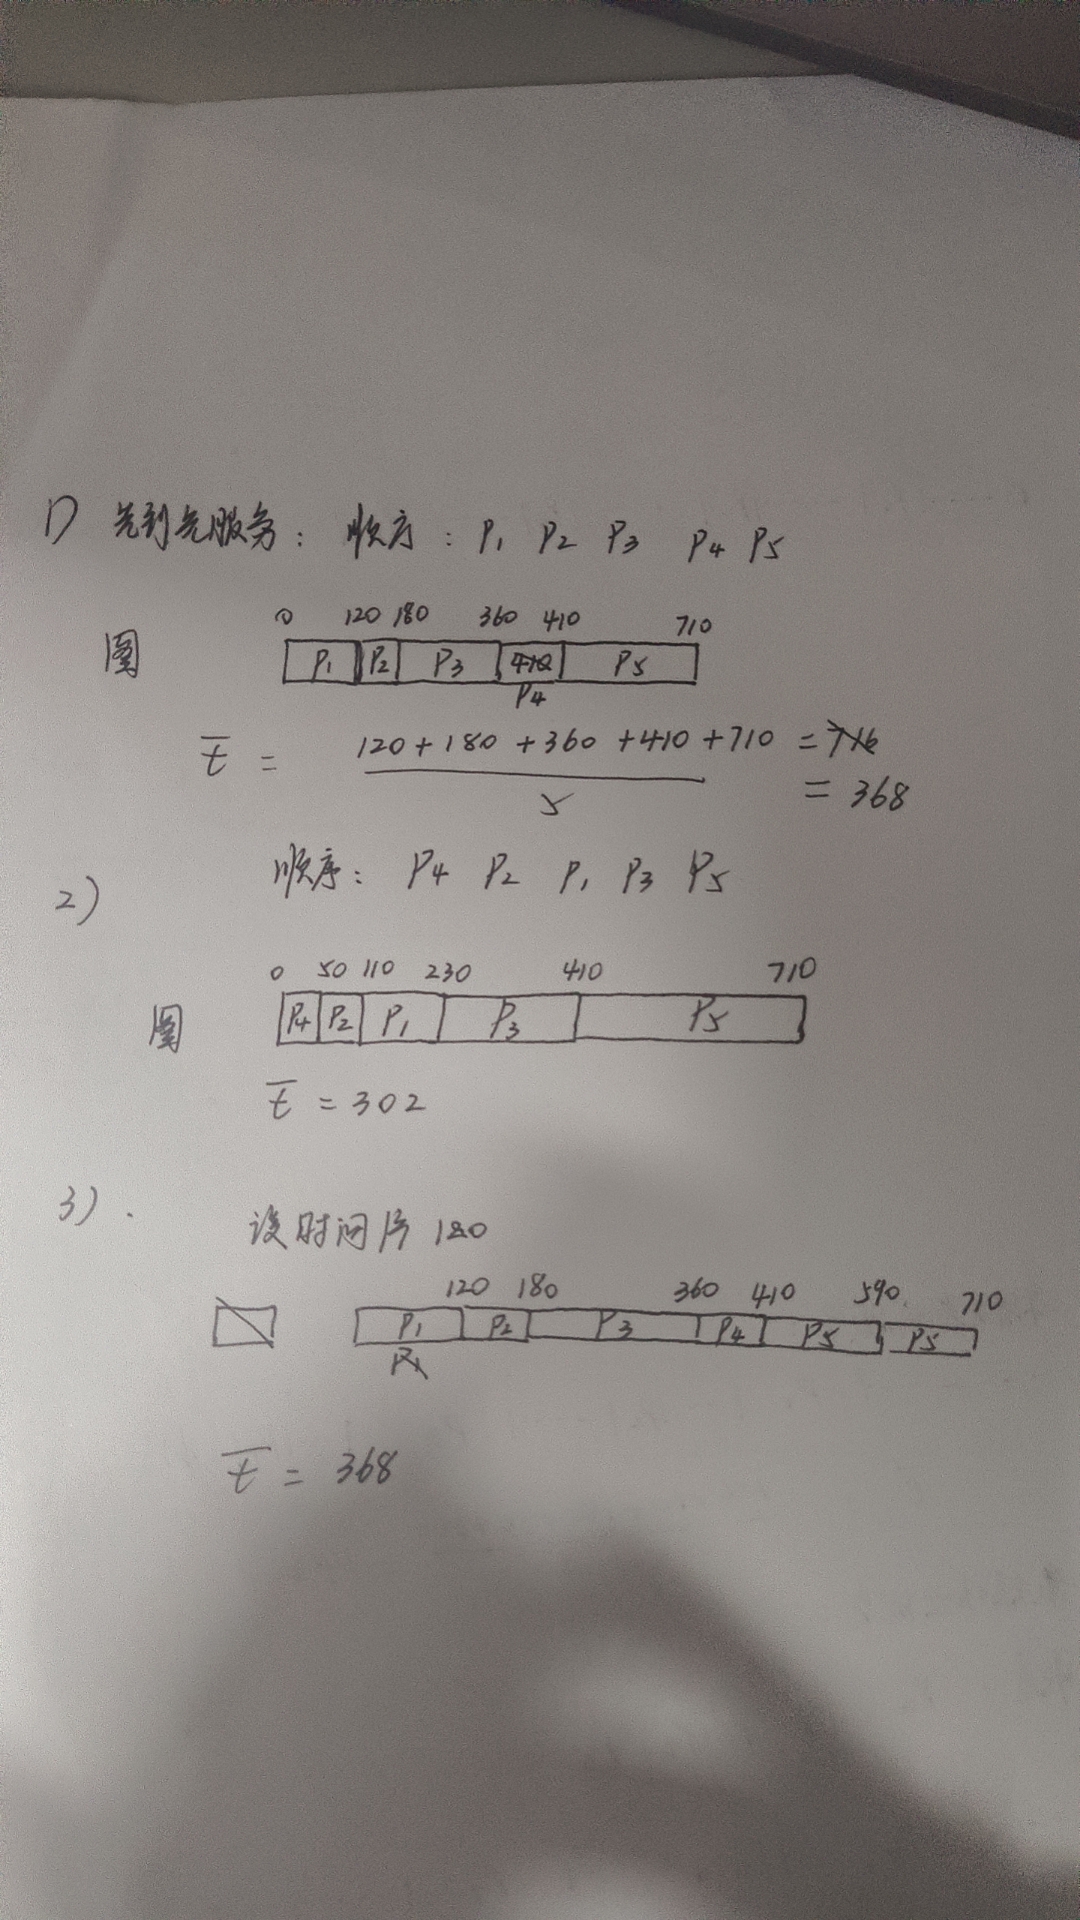 1) 先到先服务: 顺序: P1 P2 P3 P4 P5
0 120 180 360 410 710
图 P1 P2 P3 410 P5
P4
t = 120+180+360+410+710 = 716
5 = 368
2) 顺序: P4 P2 P1 P3 P5
0 50 110 230 410 710
图 P4 P2 P1 P3 P5
t = 302
3). 设时间片 180
120 180 360 410 590 710
P1 P2 P3 P4 P5 P5
P1
t = 368